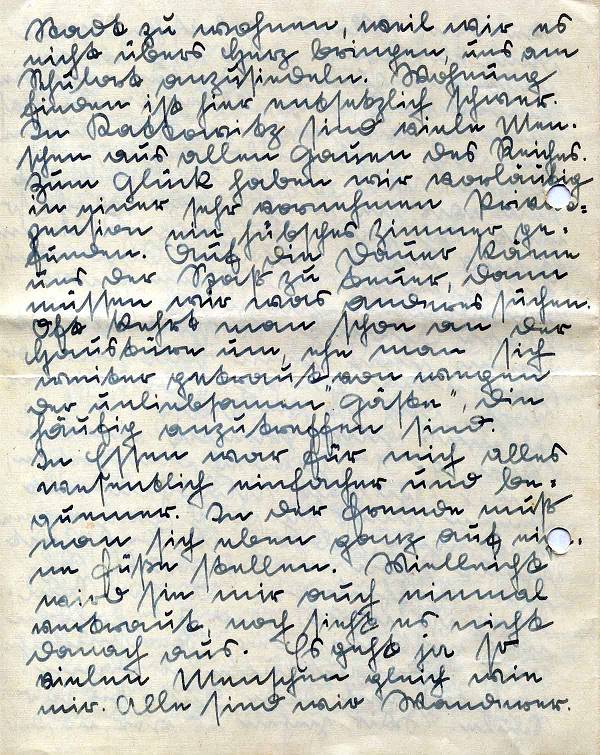 Stadt zu wohnen, weil wir es
nicht übers Herz bringen, uns am
Schulort anzusiedeln. Wohnung
finden ist hier entsetzlich schwer.
In Kattowitz sind viele Men-
schen aus allen Gauen des Reiches.
Zum Glück haben wir vorläufig
in einer sehr vornehmen Privat-
pension ein hübsches Zimmer ge-
funden. Auf die Dauer käme
uns der Spaß zu teuer, dann
müssen wir was anderes suchen.
Oft kehrt man schon an der
Haustüre um, ehe man sich
weiter getraut, von wegen
der unliebsamen "Gäste", die
häufig anzutreffen sind.
In Essen war für mich alles
wesentlich einfacher und be-
quemer. In der Fremde muß
man sich eben ganz auf eig-
ne Füße stellen. Vielleicht
wird sie mir auch einmal
vertraut, noch sieht es nicht
danach aus. Es geht ja so
vielen Menschen gleich wie
mir. Alle sind wir Wanderer.